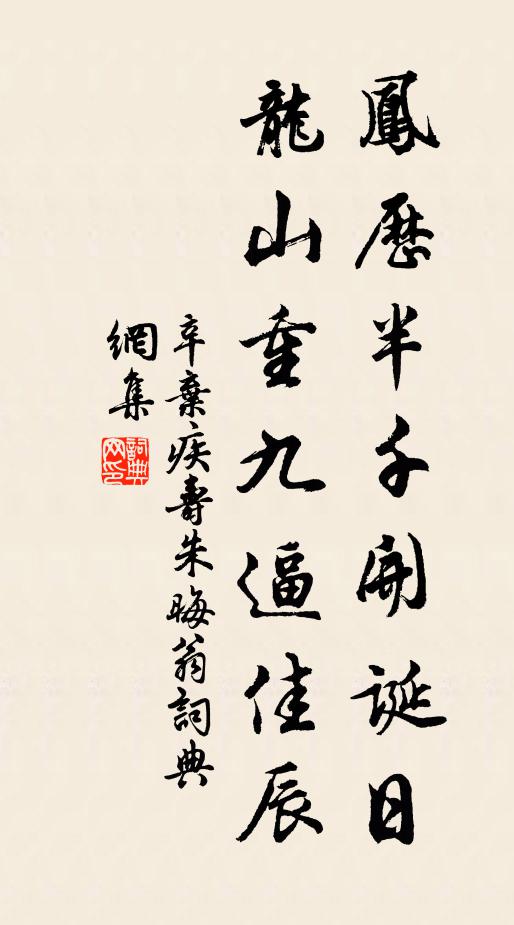 鳳曆半千開誕日
龍山重九逼佳辰
辛棄疾壽朱晦翁詞典
網集
詞典
网印